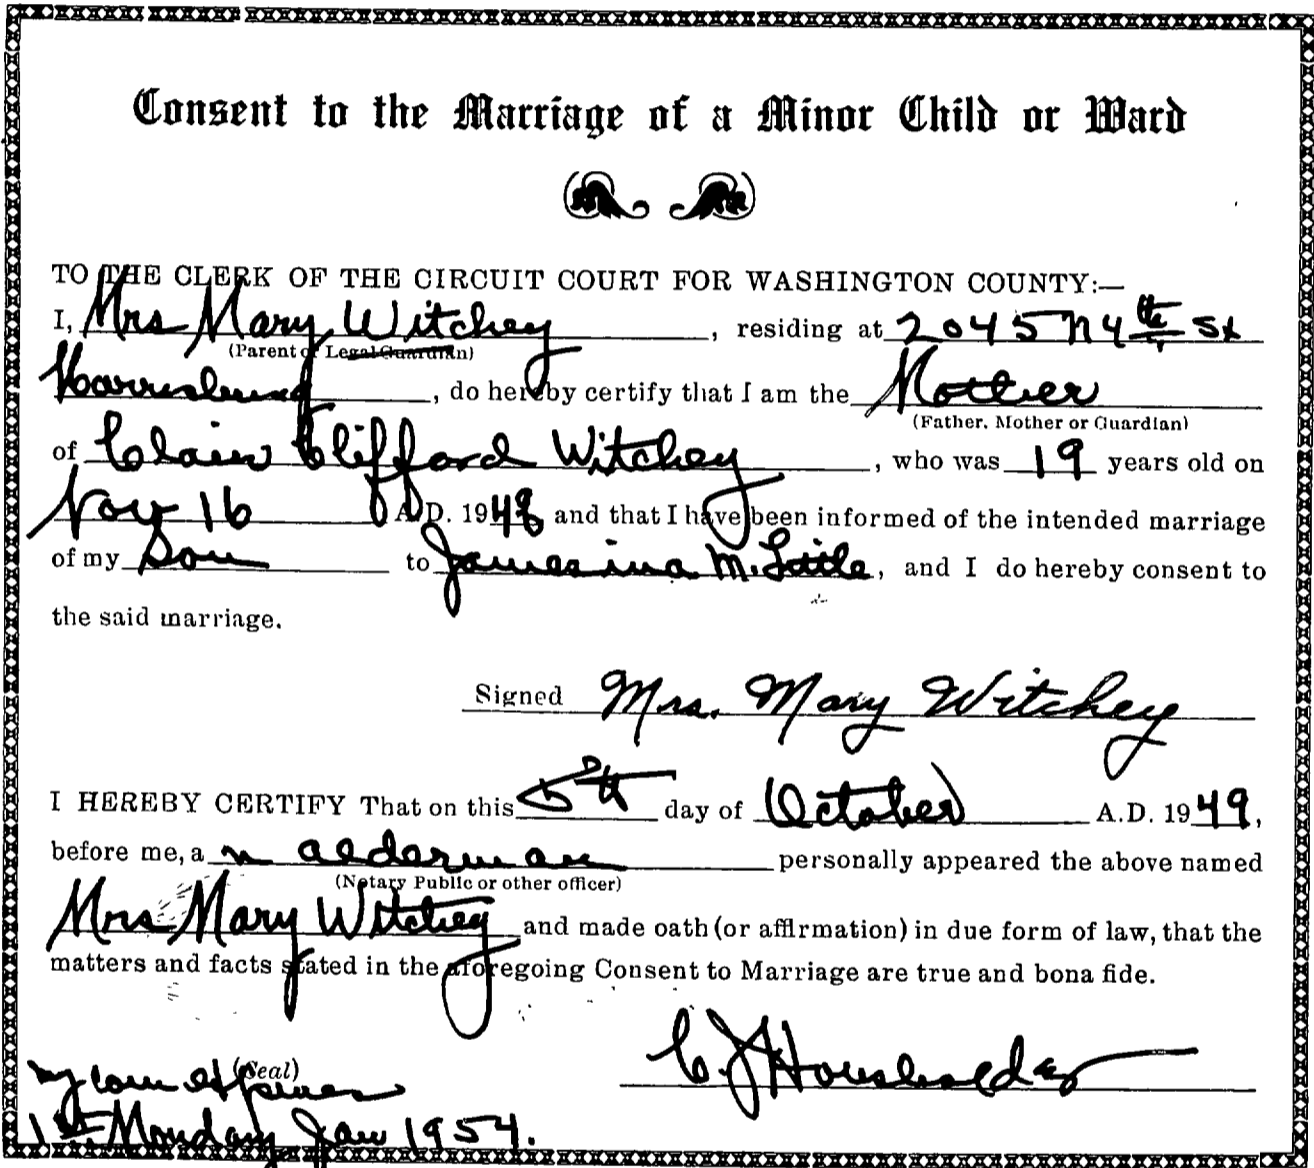 Consent to the Marriage of a Minor Child or Ward
TO THE CLERK OF THE CIRCUIT COURT FOR WASHINGTON COUNTY:—
I, Mrs Mary Witchey, residing at 2045 N 4th St
(Parent or Legal Guardian)
Harrisburg, do hereby certify that I am the Mother
(Father, Mother or Guardian)
of Clair Clifford Witchey, who was 19 years old on
Nov 16 A.D. 1948 and that I have been informed of the intended marriage
of my Son to Jamesina M. Little, and I do hereby consent to
the said marriage.
Signed Mrs. Mary Witchey
I HEREBY CERTIFY That on this 5th day of October A.D. 1949,
before me, a n alderman personally appeared the above named
(Notary Public or other officer)
Mrs Mary Witchey and made oath (or affirmation) in due form of law, that the
matters and facts stated in the aforegoing Consent to Marriage are true and bona fide.
(Seal)
C J Householder
My com expires
1st Monday Jan 1954.